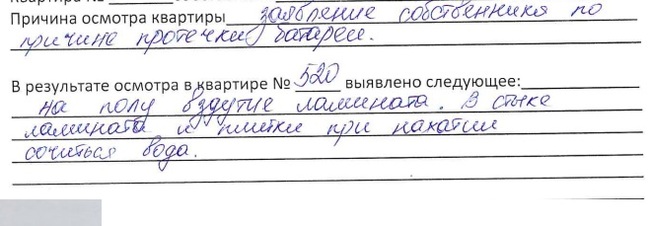 Причина осмотра квартиры заявление собственника по
причине протечки батареи.
В результате осмотра в квартире № 520 выявлено следующее:
на полу вздутие ламината. В стыке
ламината и плитки при нажатии
сочиться вода.